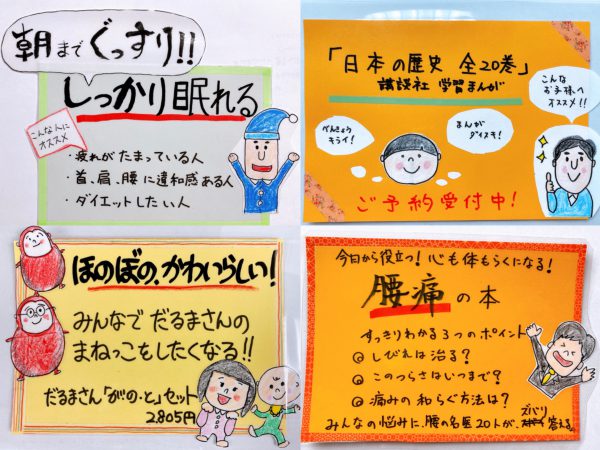 朝までぐっすり!!
しっかり眠れる
こんな人に
オススメ
・疲れがたまっている人
・首、肩、腰に違和感ある人
・ダイエットしたい人
「日本の歴史 全20巻」
講談社 学習まんが
こんな
お子様へ
オススメ!!
べんきょう
キライ!
まんが
ダイスキ!
ご予約受付中!
ほのぼの、かわいらしい!
みんなで だるまさんの
まねっこをしたくなる!!
だるまさん「が・の・と」セット
2,805円
今日から役立つ!心も体もらくになる!
腰痛の本
すっきりわかる3つのポイント
しびれは治る?
このつらさはいつまで?
痛みの和らぐ方法は?
みんなの悩みに、腰の名医20人が、ズバリ答える。